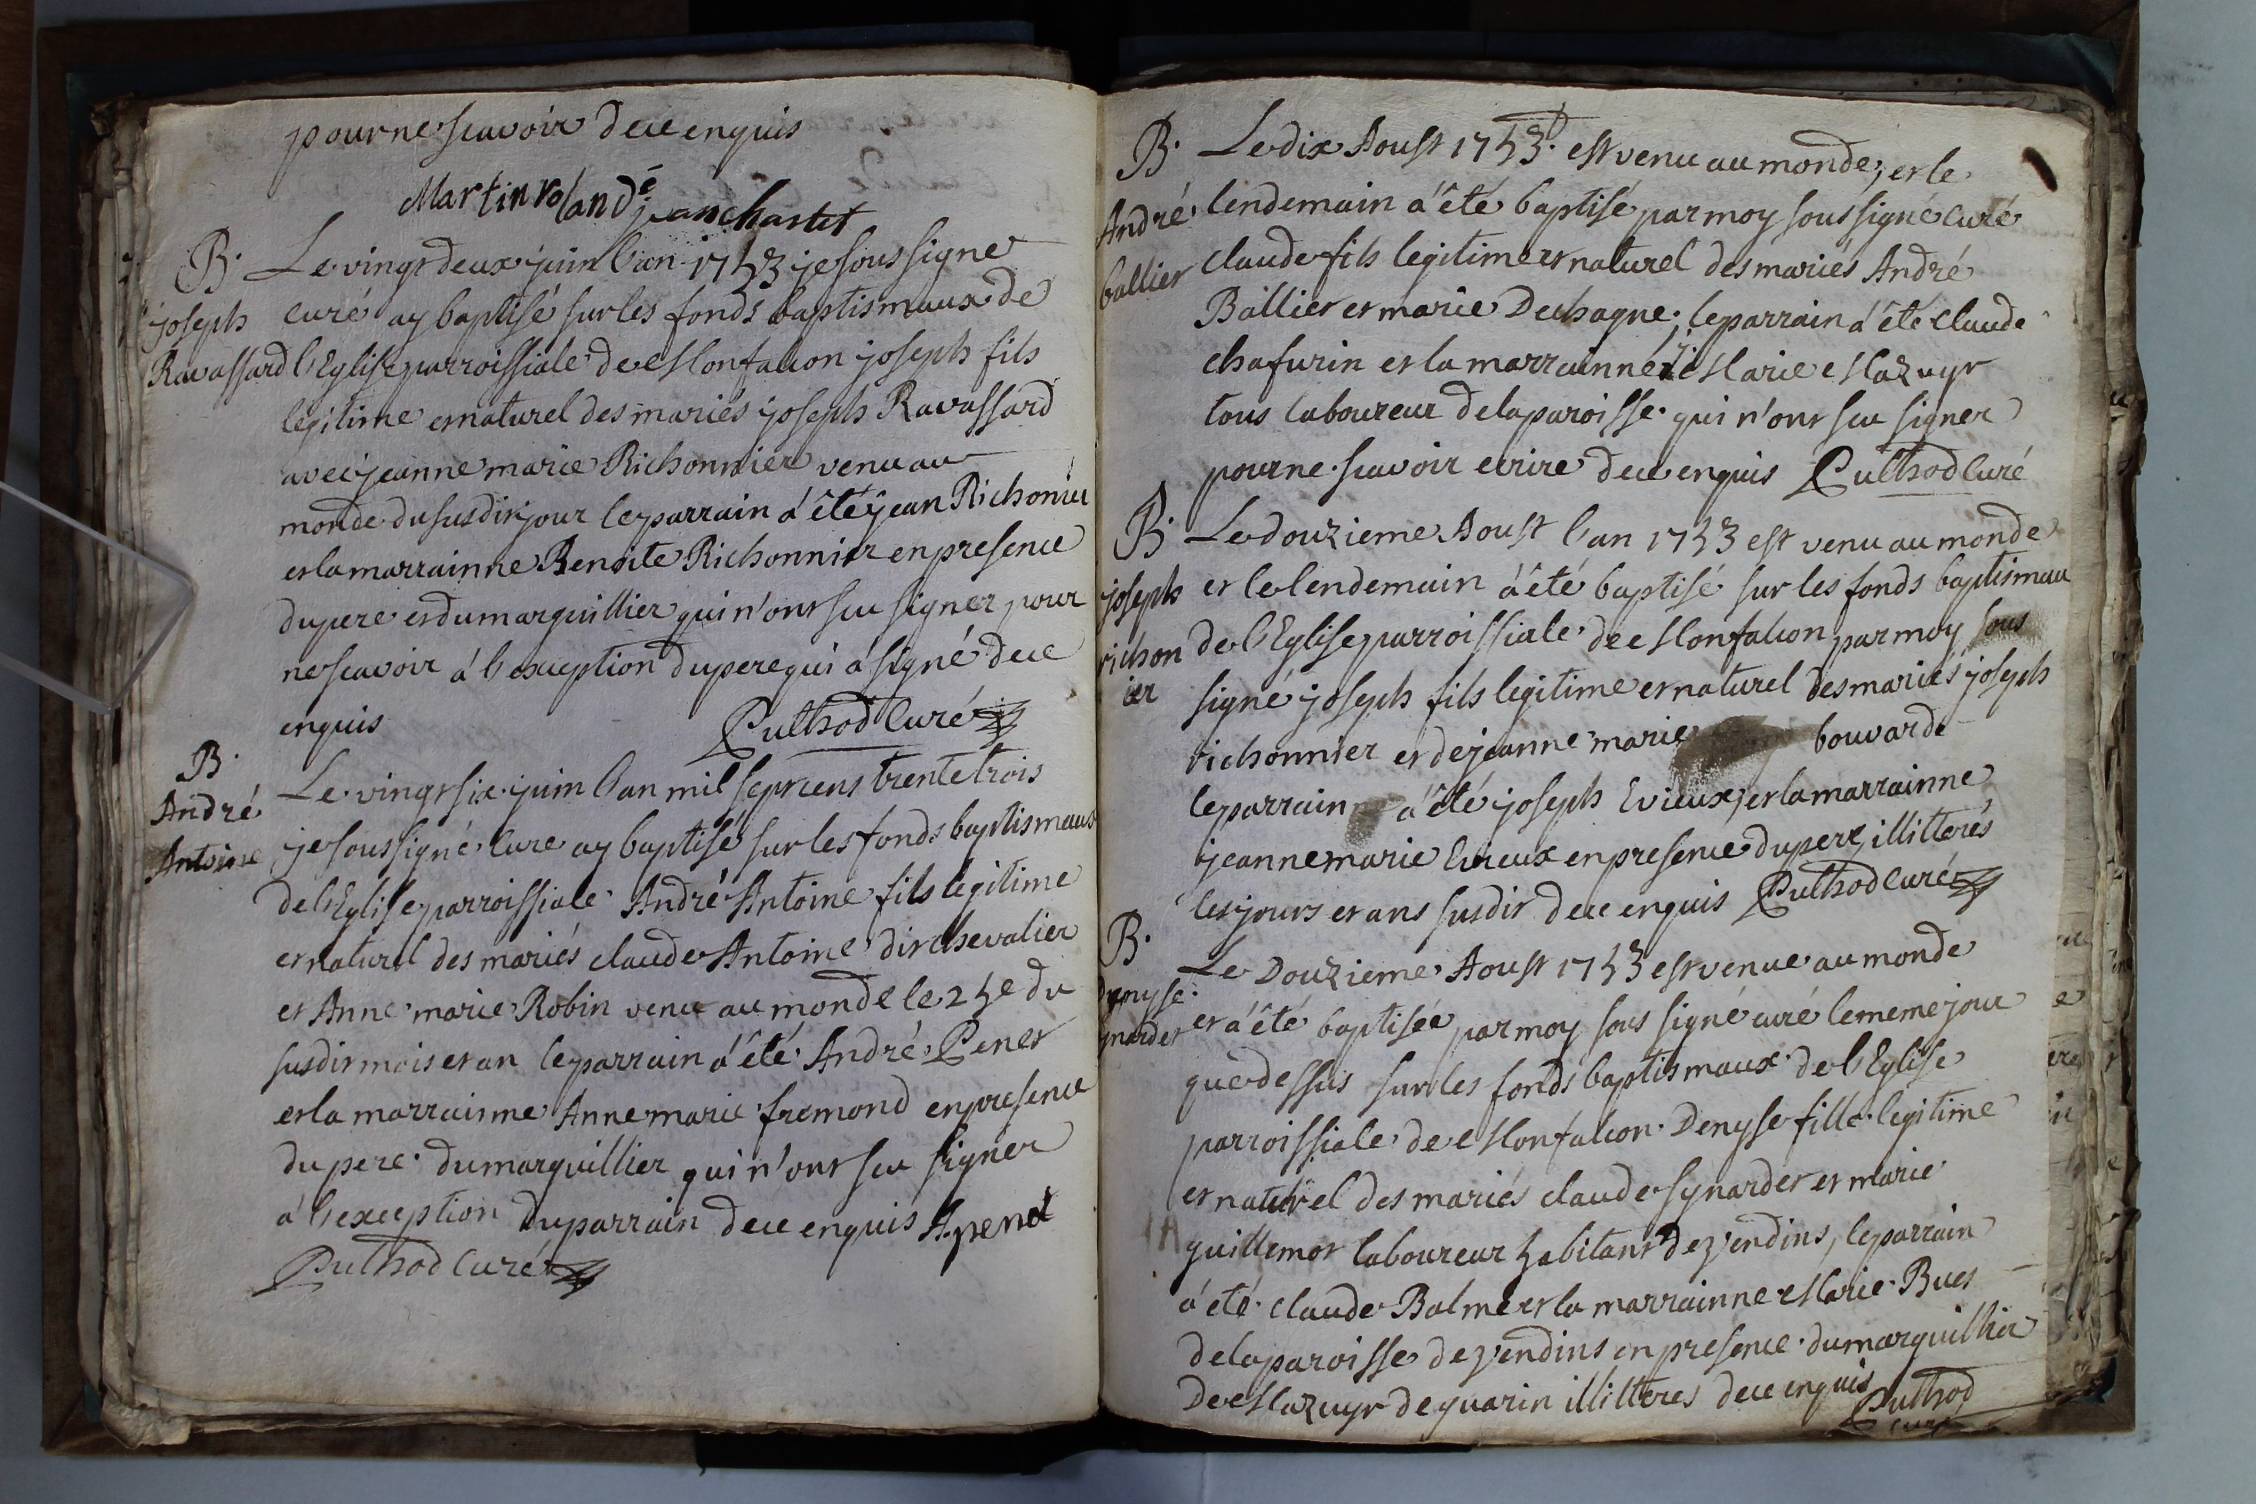 pour ne scavoir de ce enquis
Martin rolandé
jean chartet
B.
joseph
Ravassard
Le vingt deux juin l'an 1733 je sous signé
curé ay baptisé sur les fonds baptismaux de
l'Eglise parroissiale de Monfalcon joseph fils
legitime et naturel des mariés joseph Ravassard
avec jeanne marie Richonnier venu au
monde du susdit jour le parrain a été jean Richonier
et la marrainne Benoite Richonnier en presence
du pere et du marguillier qui n'ont scu signer pour
ne scavoir à l'exception du pere qui a signé de ce
enquis Puthod Curé
B.
André
Antoine
Le vingt six juin l'an mil sept cens trente trois
je sous signé Curé ay baptisé sur les fonds baptismaux
de l'Eglise parroissiale André Antoine fils legitime
et naturel des mariés claude Antoine dit chevalier
et Anne marie Robin venu au monde le 25e du
susdit mois et an le parrain a été André Penet
et la marrainne Anne marie fremond en presence
du pere du marguillier qui n'ont scu signer
à l'exception du parrain de ce enquis A. penet
Puthod Curé
B.
André
ballier
Le dix Aoust 1733. est venu au monde, et le
lendemain a été baptisé par moy sous signé curé
claude fils legitime et naturel des mariés André
Ballier et marie Dechagne. le parrain a été Claude
chafurin et la marrainne Marie Mazuyr
tous laboureur de la paroisse qui n'ont scu signer
pour ne scavoir ecrire de ce enquis Puthod Curé
B.
joseph
richon
ier
Le douzieme Aoust l'an 1733 est venu au monde
et le lendemain a été baptisé sur les fonds baptismau
de l'Eglise parroissiale de Monfalcon par moy sous
signé joseph fils legitime et naturel des mariés joseph
richonnier et de jeanne marie bouvarde
le parrain a été joseph Evieux, et la marrainne
jeanne marie Evieux en presence du pere, illitterés
les jours et ans susdit de ce enquis Puthod Curé
B.
Denyse
ynardet
Le Douzieme Aoust 1733 est venue au monde
et a été baptisée par moy sous signé curé le meme jour
que dessus sur les fonds baptismaux de l'Eglise
parroissiale de Monfalcon Denyse fille legitime
et naturel des mariés claude Synardet et marie
guillemot laboureur habitant de vendins, le parrain
a été claude Balme et la marrainne Marie Buet
de la paroisse de vendins en presence du marguillier
de Mazuyr de guarin illitteres de ce enquis Puthod
curé